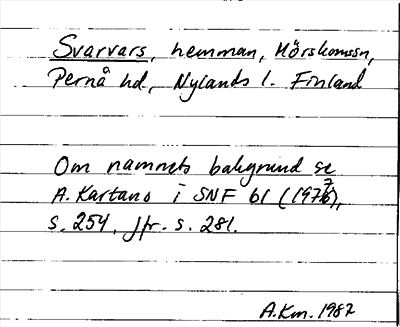 Svarvars, hemman, Mörskomssn,
Pernå hd., Nylands l. Finland
Om namnets bakgrund se
A. Kartano i SNF 61 (1977),
s. 254. Jfr. s. 281.
A.Km. 1987